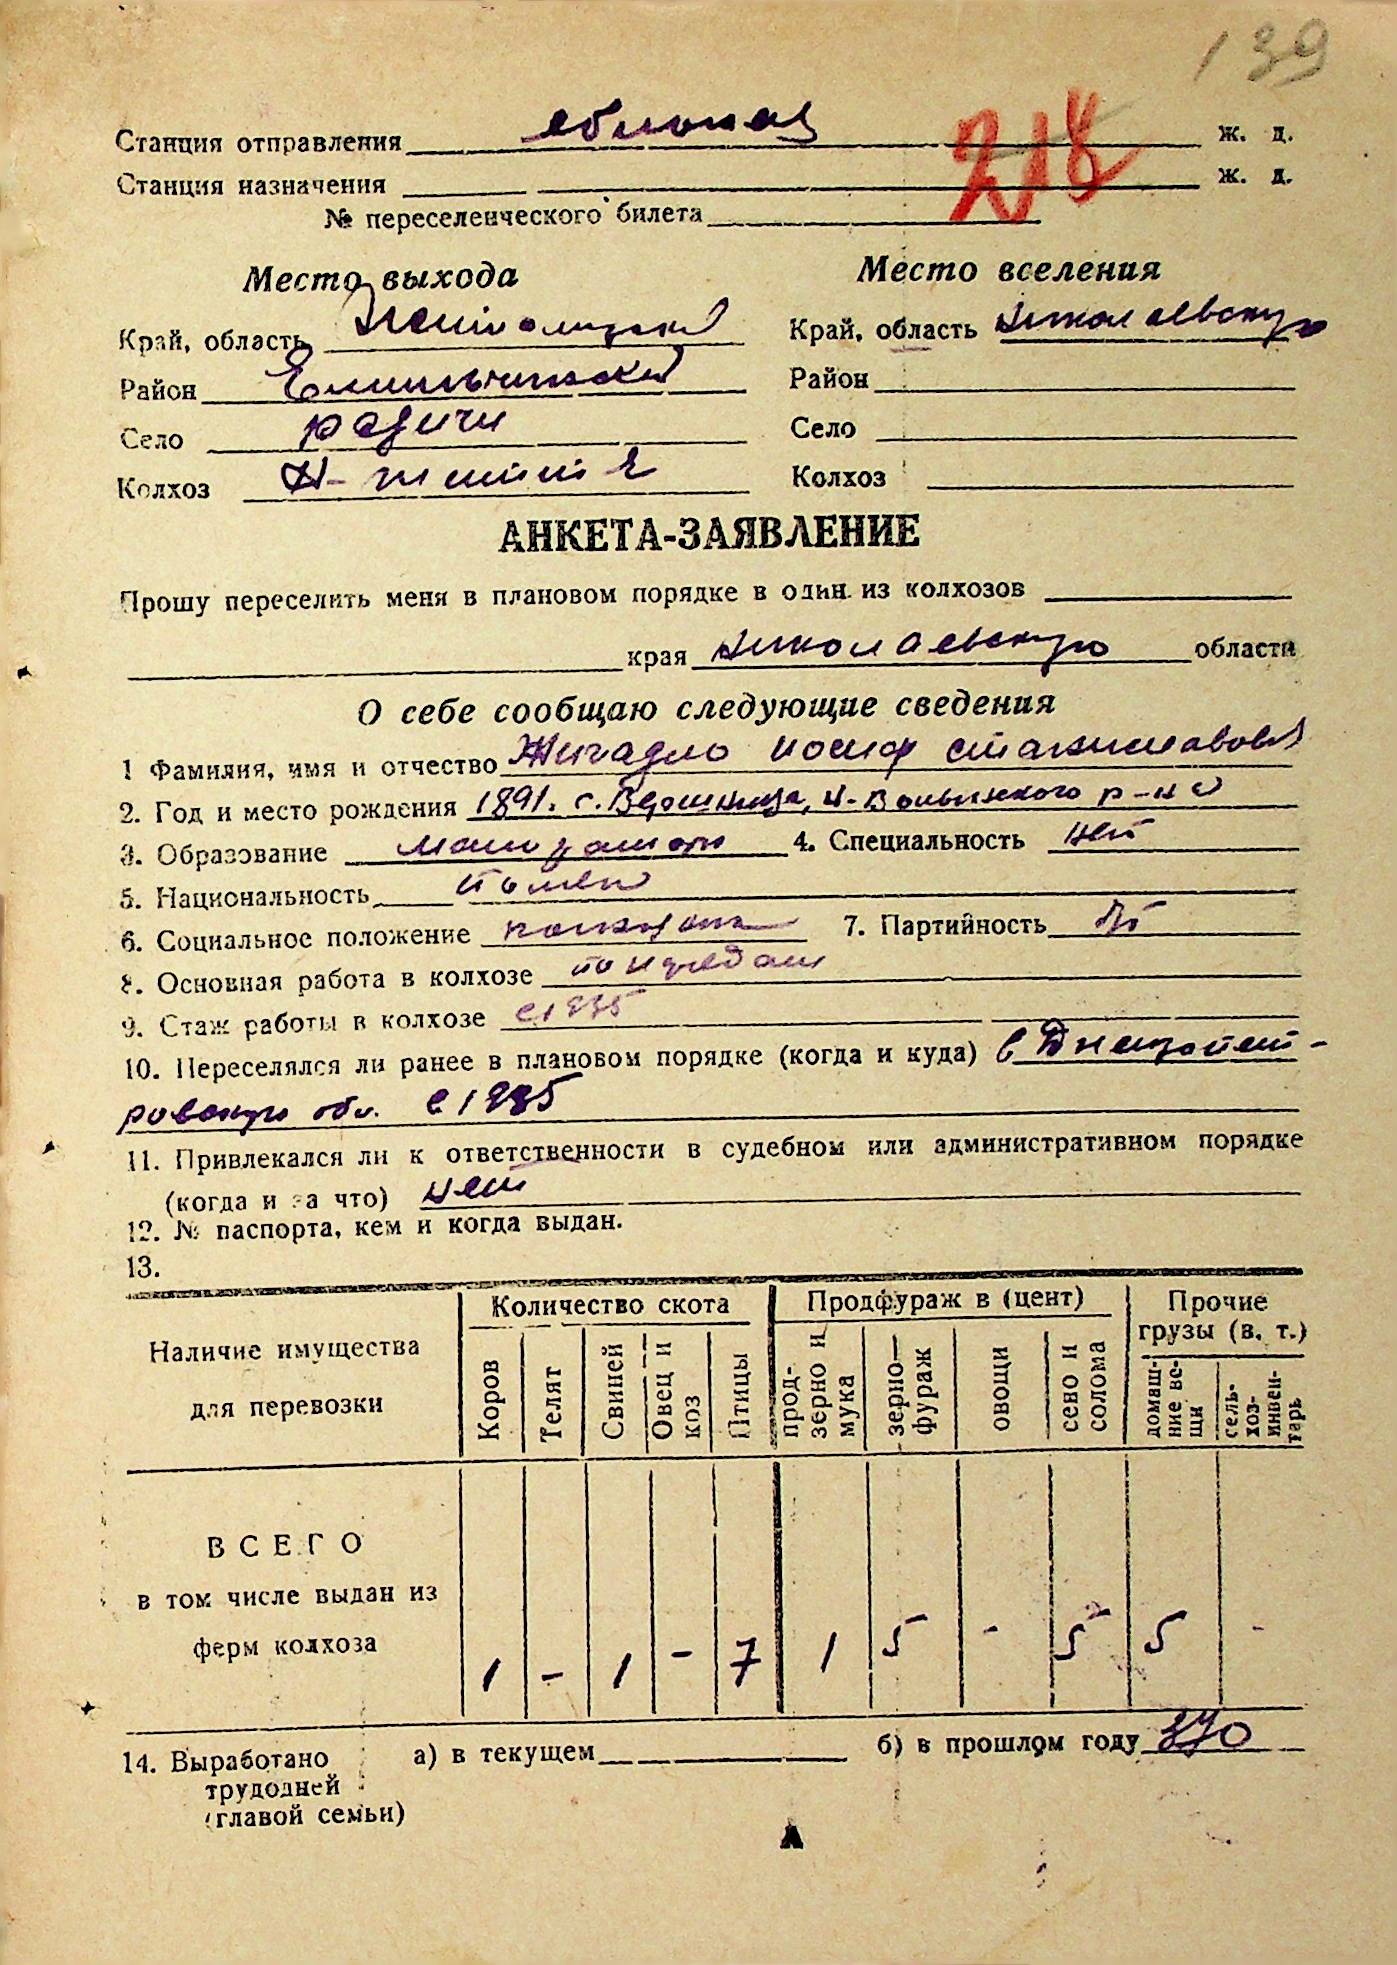 139
Станция отправления Яблонец ж. д.
218
Станция назначения ж. д.
№ переселенческого билета
Место выхода Место вселения
Край, область Житомирской Край, область Николаевскую
Район Емильчинский Район
Село Радичи Село
Колхоз Н-життя Колхоз
АНКЕТА-ЗАЯВЛЕНИЕ
Прошу переселить меня в плановом порядке в один из колхозов
края Николаевскую области
О себе сообщаю следующие сведения
1 Фамилия, имя и отчество Жигадло Иосиф Станиславов
2. Год и место рождения 1891. с. Вершница, Н-Волынского р-на
3. Образование малограмотн 4. Специальность нет
5. Национальность поляк
6. Социальное положение 7. Партийность
8. Основная работа в колхозе по нарядам
9. Стаж работы в колхозе с 1935
10. Переселялся ли ранее в плановом порядке (когда и куда) в Днепропет-
ровскую обл. с 1935
11. Привлекался ли к ответственности в судебном или административном порядке
(когда и за что) нет
12. № паспорта, кем и когда выдан.
13.
Количество скота Продфураж в (цент) Прочие
грузы (в. т.)
Наличие имущества
для перевозки
Коров Телят Свиней Овец и коз Птицы прод-зерно и мука зерно-фураж овощи сено и солома домаш-ние ве-щи сель-хоз-инвен-тарь
ВСЕГО
в том числе выдан из
ферм колхоза
1 - 1 - 7 1 5 - 5 5 -
14. Выработано а) в текущем б) в прошлом году 370
трудодней
(главой семьи)